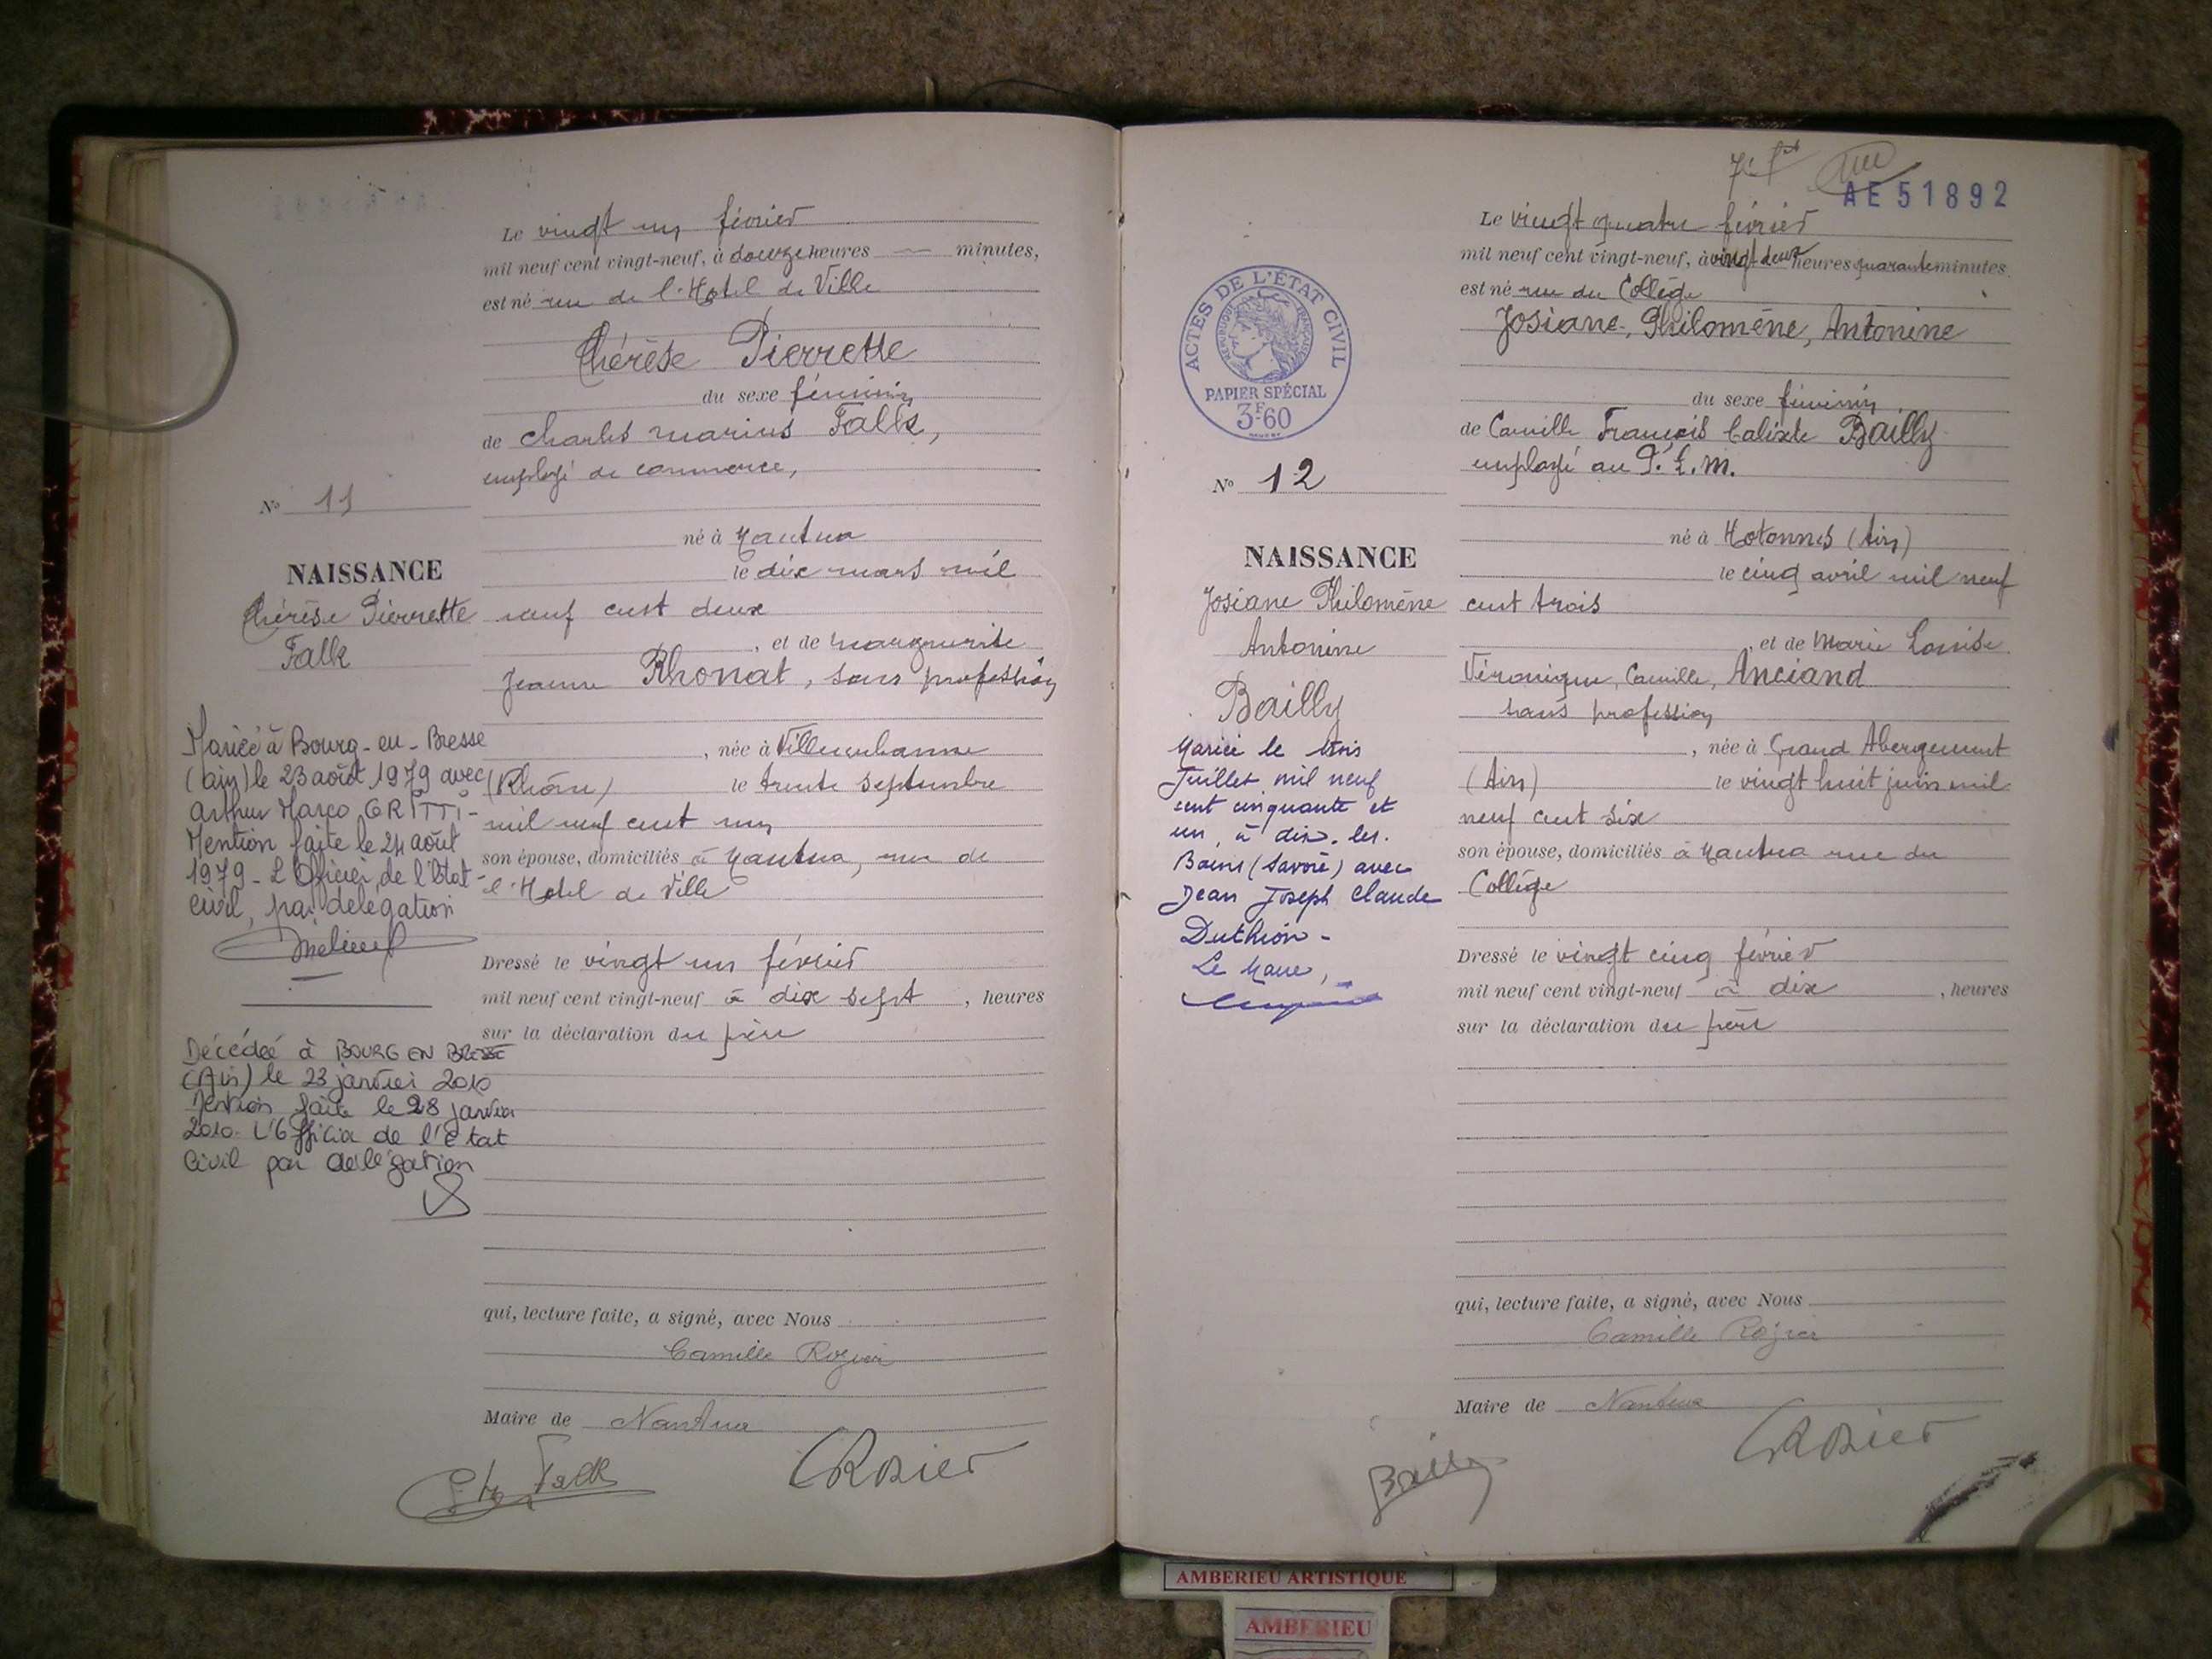 Le vingt un février
mil neuf cent vingt-neuf, à douze heures — minutes,
est né rue de l'Hotel de Ville
Thérèse Pierrette
du sexe féminin
de Charles Marius Falk,
employé de commerce,
né à Nantua
le dix mars mil
neuf cent deux
, et de Marguerite
Jeanne Rhonat, sans profession
, née à Villeurbanne
(Rhône) le trente septembre
mil neuf cent un
son épouse, domiciliés à Nantua, rue de
l'Hotel de Ville
Dressé le vingt un février
mil neuf cent vingt-neuf à dix sept , heures
sur la déclaration du père
qui, lecture faite, a signé, avec Nous
Camille Rozier
Maire de Nantua
Ch. Falk
CRozier
N° 11
NAISSANCE
Thérèse Pierrette
Falk
Mariée à Bourg-en-Bresse
(ain) le 23 août 1979 avec
Arthur Marco GRITTI -
Mention faite le 24 août
1979 - L'Officier de l'Etat-
civil, par délégation
Décédée à BOURG EN BRESSE
(Ain) le 23 janvier 2010
Mention faite le 28 janvier
2010. L'Officier de l'état
Civil par délégation
AE 51892
Le vingt quatre février
mil neuf cent vingt-neuf, à vingt deux heures quarante minutes
est né rue du Collège
Josiane, Philomène, Antonine
du sexe féminin
de Camille François Calixte Bailly
employé au P.L.M.
né à Hotonnes (Ain)
le cinq avril mil neuf
cent trois
, et de Marie Louise
Véronique, Camille, Anciand
sans profession
, née à Grand Abergement
(Ain) le vingt huit juin mil
neuf cent six
son épouse, domiciliés à Nantua rue du
Collège
Dressé le vingt cinq février
mil neuf cent vingt-neuf à dix , heures
sur la déclaration du père
qui, lecture faite, a signé, avec Nous
Camille Rozier
Maire de Nantua
Bailly
CRozier
ACTES DE L'ÉTAT CIVIL
RÉPUBLIQUE FRANÇAISE
PAPIER SPÉCIAL
3F60
N° 12
NAISSANCE
Josiane Philomène
Antonine
Bailly
Mariée le trois
Juillet mil neuf
cent cinquante et
un, à Aix. les.
Bains (Savoie) avec
Jean Joseph Claude
Duthion -
Le Maire,
AMBERIEU ARTISTIQUE
AMBERIEU